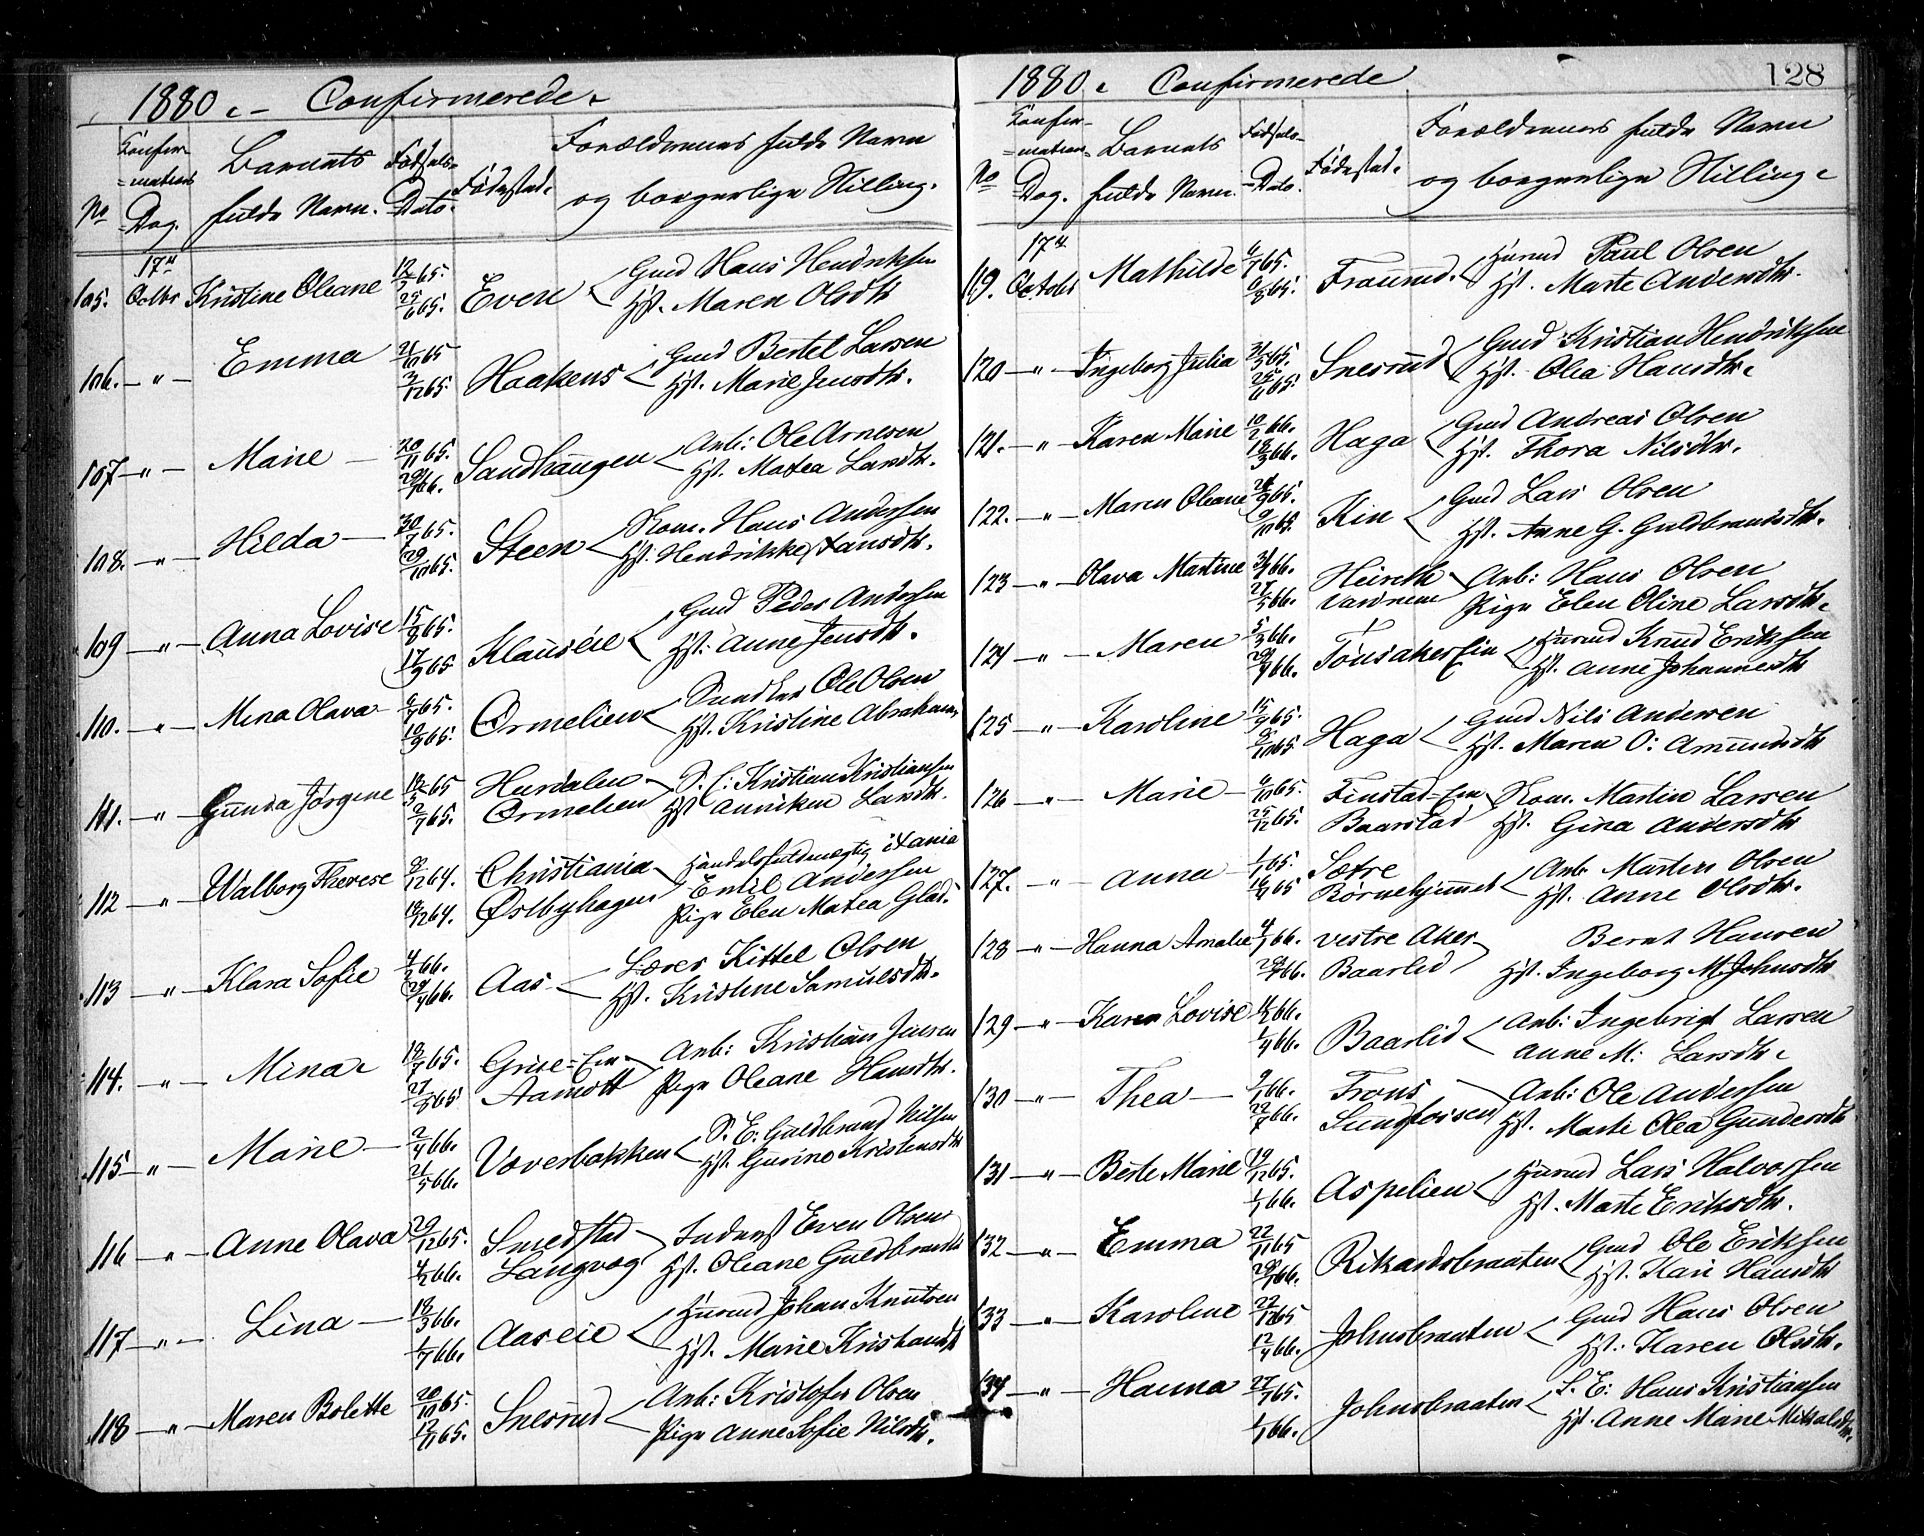 1880. - Confirmerede.
No
Konfirmations Dag.
Barnets fulde Navn.
Fødsels-Dato.
Fødested.
Forældrenes fulde Navn og borgerlige Stilling.
17de
105. Octbr Kristine Oleane 12/5 65. Even Gmd Hans Hendriksen
25/6 65. Hst. Maren Olsdtr
106. — " — Emma 21/10 65 Haakens Gmd Bertel Larsen
3/12 65. Hst. Marie Jensdtr.
107 — " — Marie — 20/11 65. Sandhaugen Arb: Ole Arnesen
66. Hst. Matea Larsdtr.
108. — " — Hilda — 30/7 65. Steen Kom. Hans Andersen
29/10 65. Hst. Hendrikke Hansdtr.
109 — " — Anna Lovise 15/8 65. Klauseie Gmd Peder Andersen
17/9 65 Hst: Anne Jensdtr.
110. — " — Mina Olava 6/7 65. Ormelien Snedker Ole Olsen
10/9 65. Hst. Kristine Abrahams
111. — " — Gunda Jørgine 18/5 65 Hurdalen S. E: Kristian Kristiansen
2/7 65. Ormelien Hst Anniken Larsdtr.
112 — " — Walborg Therese 8/12 64. Christiania Handelsfuldmægtig i Xania
18/12 64. Østbyhagen Emil Andersen
Pige Elen Matea Glad.
113 — " — Klara Sofie 4/2 66. Aas Lærer Kittel Olsen
29/4 66. Hst. Kristine Samuelsdtr.
114. — " — Mina 18/7 65. Grise-Ein Arb: Kristian Jensen
27/8 65 Aamott Pige Oleane Hansdtr.
115 — " — Marie — 2/4 66. Væverbakken S. E: Guldbrand Nilsen
21/5 66. Hst. Gurine Kristensdtr
116 — " — Anne Olava 29/12 65. Smedstad Inderst Even Olsen
4/2 66. Langvog Hst. Oleane Guldbrandsdtr
117 — " — Lina — 18/3 66. Aaseie Husmd Johan Knutsen
1/7 66. Hst. Marie Kristiansdtr
118 — " — Maren Bolette 20/10 65. Snesrud Arb: Kristofer Olsen
12/11 65. Pige Anne Sofie Nilsdtr.
1880. Confirmerede
128
No
Konfirmations Dag.
Barnets fulde Navn.
Fødsels-Dato.
Fødested.
Forældrenes fulde Navn og borgerlige Stilling.
17de
119. Octobr Mathilde 6/7 65. Fraurud. Husmd Paul Olsen
6/8 65. Hst. Marte Andersdtr.
120 — " — Ingeborg Julia 31/5 65. Snesrud Gmd Kristian Hendriksen
25/6 65. Hst. Olea Hansdtr.
121. — " — Karen Marie 10/2 66. Haga Gmd Andreas Olsen
18/3 66. Hst. Thora Nilsdtr.
122. — " — Maren Oleane 65. Kin Gmd Lars Olsen
65. Hst. Anne G. Guldbrandsdtr.
123 — " — Olava Martine 66. Arb: Hans Olsen
27/5 66. Pige Elen Oline Larsdtr.
124 — " — Maren 5/3 66. Tønsaker Ein Husmd Knud Eriksen
66. Hst. Anne Johannesdtr
125 — " — Karoline 15/9 65. Haga Gmd Nils Andersen
8/10 65. Hst. Maren O: Amundsdtr
126 — " — Marie — 6/10 65. Finstad-Ein Kom. Martin Larsen
25/12 65. Baarstad Hst. Gina Andersdtr
127. — " — Anna — 65. Sætre Arb. Martin Olsen
65 Børnehjemmet Hst. Anne Olsdtr.
128 — " — Hanna Amalie 4/1 66. Vestre Aker Bernt Hansen
66. Baarlid Hst. Ingeborg M. Johnsdtr
129 — " — Karen Lovise 66. Baarlid Arb: Ingebrigt Larsen
1/4 66. Anne M: Larsdtr.
130 — " — Thea — 9/1 66. Frons Arb: Ole Andersen
22/7 66. Sundfossen Hst. Marte Olea Gundersdtr
131 — " — Berte Marie 19/12 65. Aspelien Husmd Lars Halvorsen
1/1 66. Hst. Marte Eriksdtr.
132 — " — Emma 22/11 65 Rikardsbraaten Gmd Ole Eriksen
66. Hst. Kari Hansdtr
133 — " — Karoline 27/12 65 Johnsbraaten Gmd Hans Olsen
12/4 66. Hst. Karen Olsdtr.
134 — " — Hanna 27/7 65. Johnsbraaten S. E: Hans Kristiansen
1/1 66. Hst. Anne Marie Mikalsdtr.